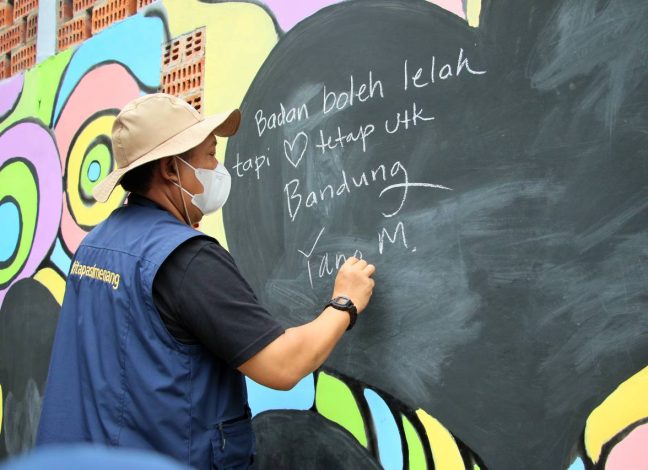 Badan boleh lelah
tapi ♡ tetap utk
Bandung
Yana M.